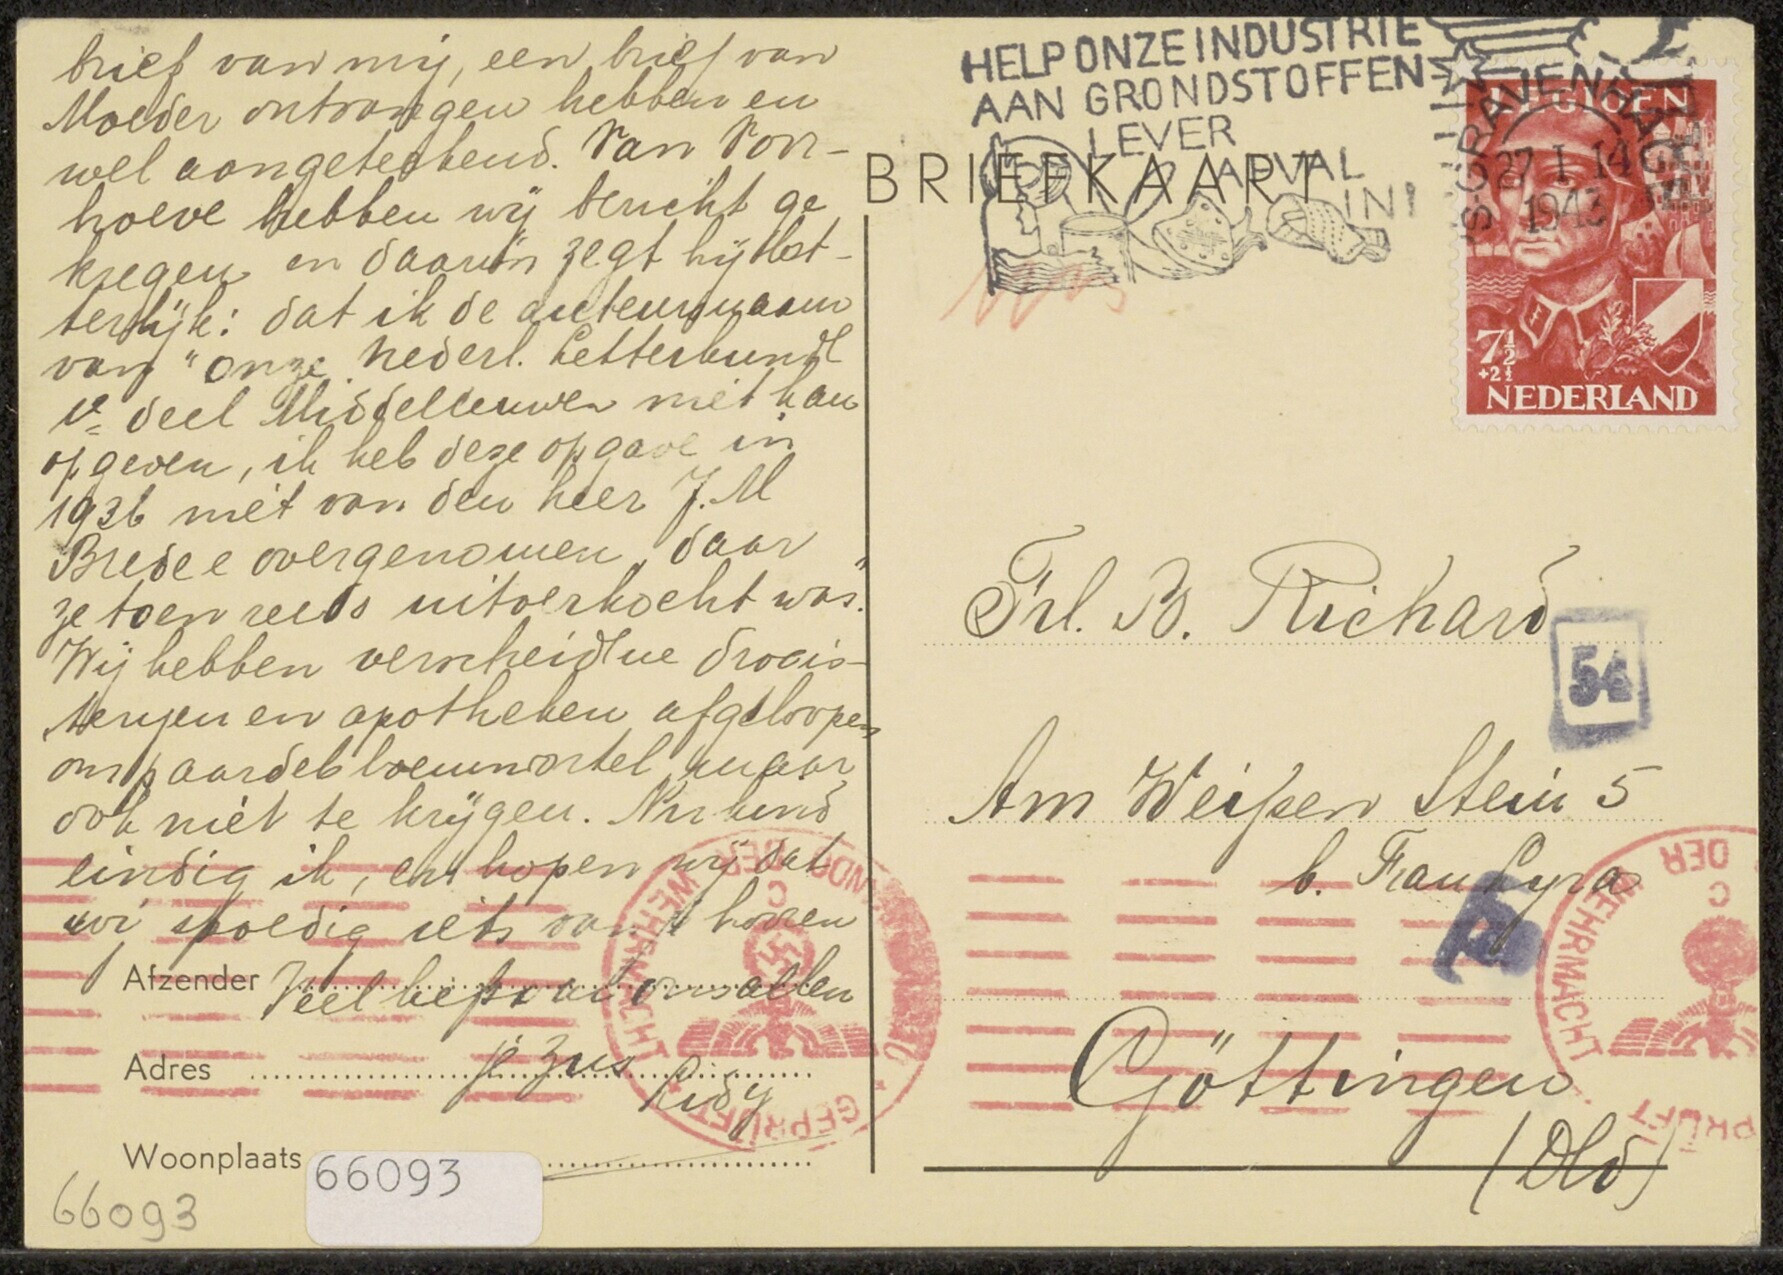 brief van mij, een brief van
Moeder ontvangen hebben en
wel aangetekend. Van Von-
hoeve hebben wij bericht ge
kregen en daarin zegt hij let-
terlijk: dat ik de auteursnaam
van "Onze Nederl. Letterkunde
1e deel Middeleeuwen niet kan
opgeven, ik heb deze opgave in
1936 niet van den heer J.M
Bredee overgenomen, daar
ze toen reeds uitverkocht was."
Wij hebben verscheidne drogis-
terijen en apotheken afgeloopen
om paardebloemwortel, maar
ook niet te krijgen. Nu kind
eindig ik, en hopen wij dat
wij spoedig iets van je hooren
Veel liefs van ons allen
je Zus
Afzender
Adres
Woonplaats
66093
66093
HELP ONZE INDUSTRIE
AAN GRONDSTOFFEN
LEVER
AFVAL
IN!
BRIEFKAART
'S-GRAVENHAGE
27 I 14
1943
LEGIOEN
7½
+2½
NEDERLAND
Frl. B. Richard
54
Am Weißen Stein 5
b. Frau Lyra
Göttingen
(Dld)
DER WEHRMACHT
C
GEPRÜFT
DER WEHRMACHT
C
PRÜFT